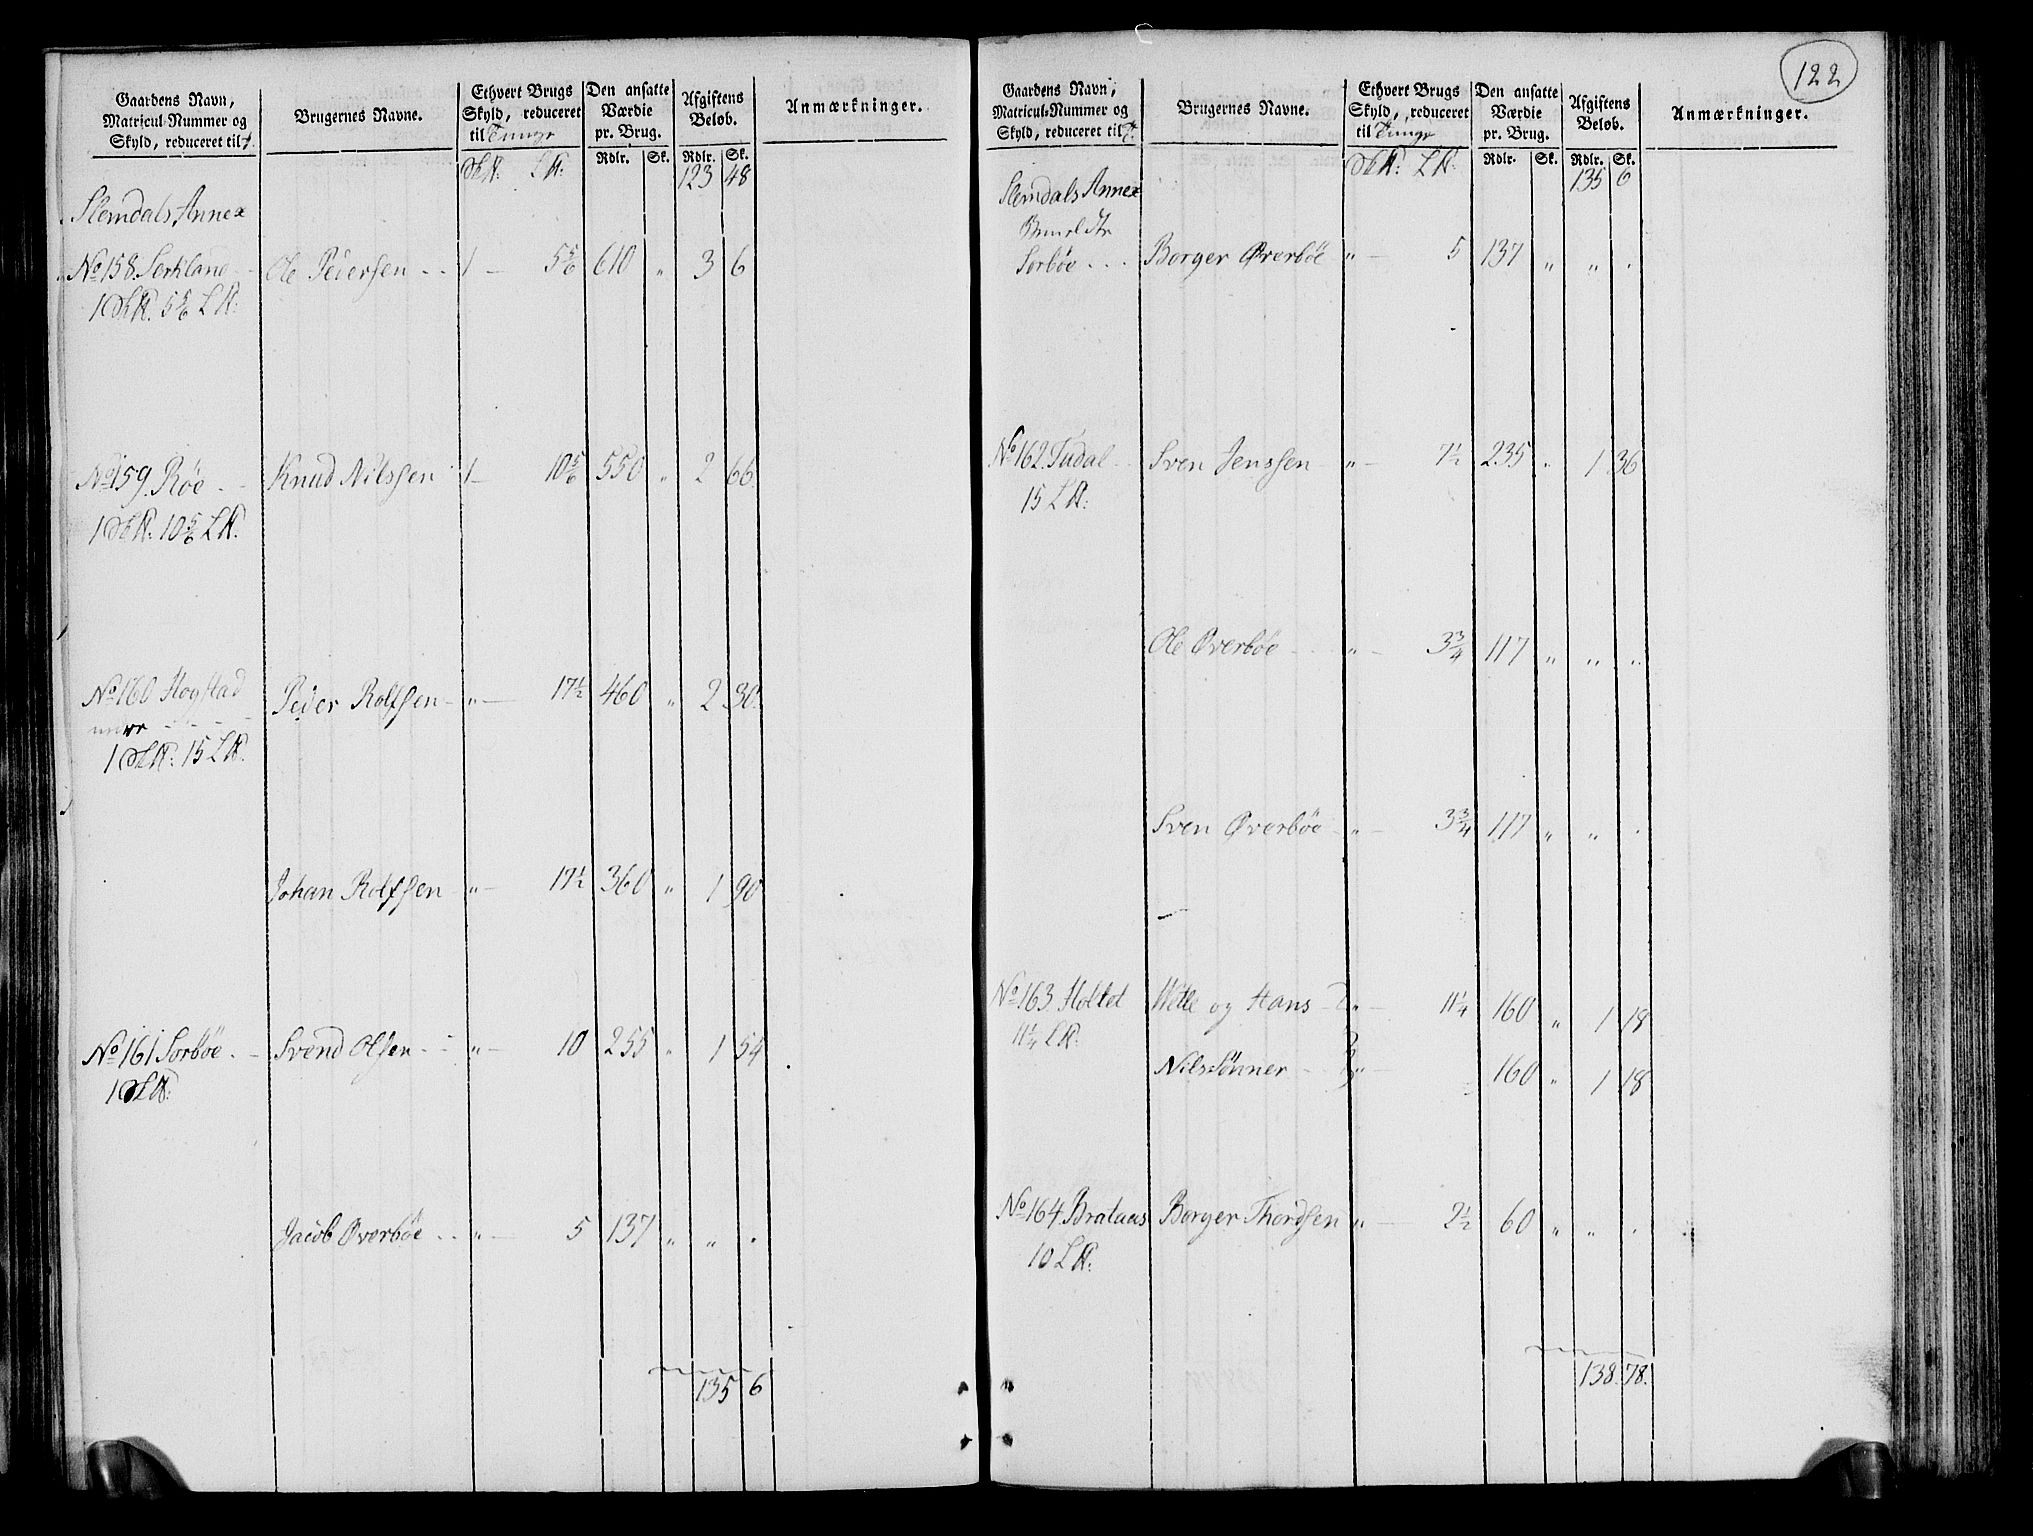 122
Gaardens Navn, Matricul-Nummer og Skyld, reduceret til
Brugernes Navne.
Ethvert Brugs Skyld, reduceret til Tunge
Den ansatte Værdie pr. Brug.
Afgiftens Beløb.
Anmærkninger.
Rdlr. Sk. Rdlr. Sk.
123 48
Slemdals Annex
No 158. Serkland Ole Pedersen - - 1 - 5 5/6 610 „ 3 6
1 S℔. 5 5/6 L℔:
No 159. Røe - - Knud Nilssen 1 - 10 5/6 550 „ 2 66
1 S℔: 10 5/6 L℔.
No 160 Hogstad Peder Rolfsen - „ - 17 1/2 460 „ 2 30
1 S℔: 15 L℔.
Johan Rolfsen „ - 17 1/2 360 „ 1 90
No 161 Sorbøe - Svend Olsen - - „ - 10 255 „ 1 54
1 S℔:
Jacob Øverbøe - - „ - 5 137 „ „ .
135 6
Gaardens Navn, Matricul-Nummer og Skyld, reduceret til
Brugernes Navne.
Ethvert Brugs Skyld, reduceret til Tunge
Den ansatte Værdie pr. Brug.
Afgiftens Beløb.
Anmærkninger.
S℔: L℔: Rdlr. Sk. Rdlr. Sk.
135 6
Slemdals Annex
Sorbøe - - - Borger Øverbøe „ - 5 137 „ „ .
No 162 Tudal - - Sven Jenssen - „ - 7 1/2 235 „ 1 36
15 L℔:
Ole Øverbøe - - „ - 3 3/4 117 „ „ „
Sven Øverbøe - „ - 3 3/4 117 „ „ .
No 163 Holtet Wetle og Hans „ - 11 1/4 160 „ 1 18
11 1/4 L℔.
Nils Sønner - - „ - 160 „ 1 18
No 164 Brataas Borger Thordsen „ - 2 1/2 60 „ „ .
10 L℔:
138. 78.